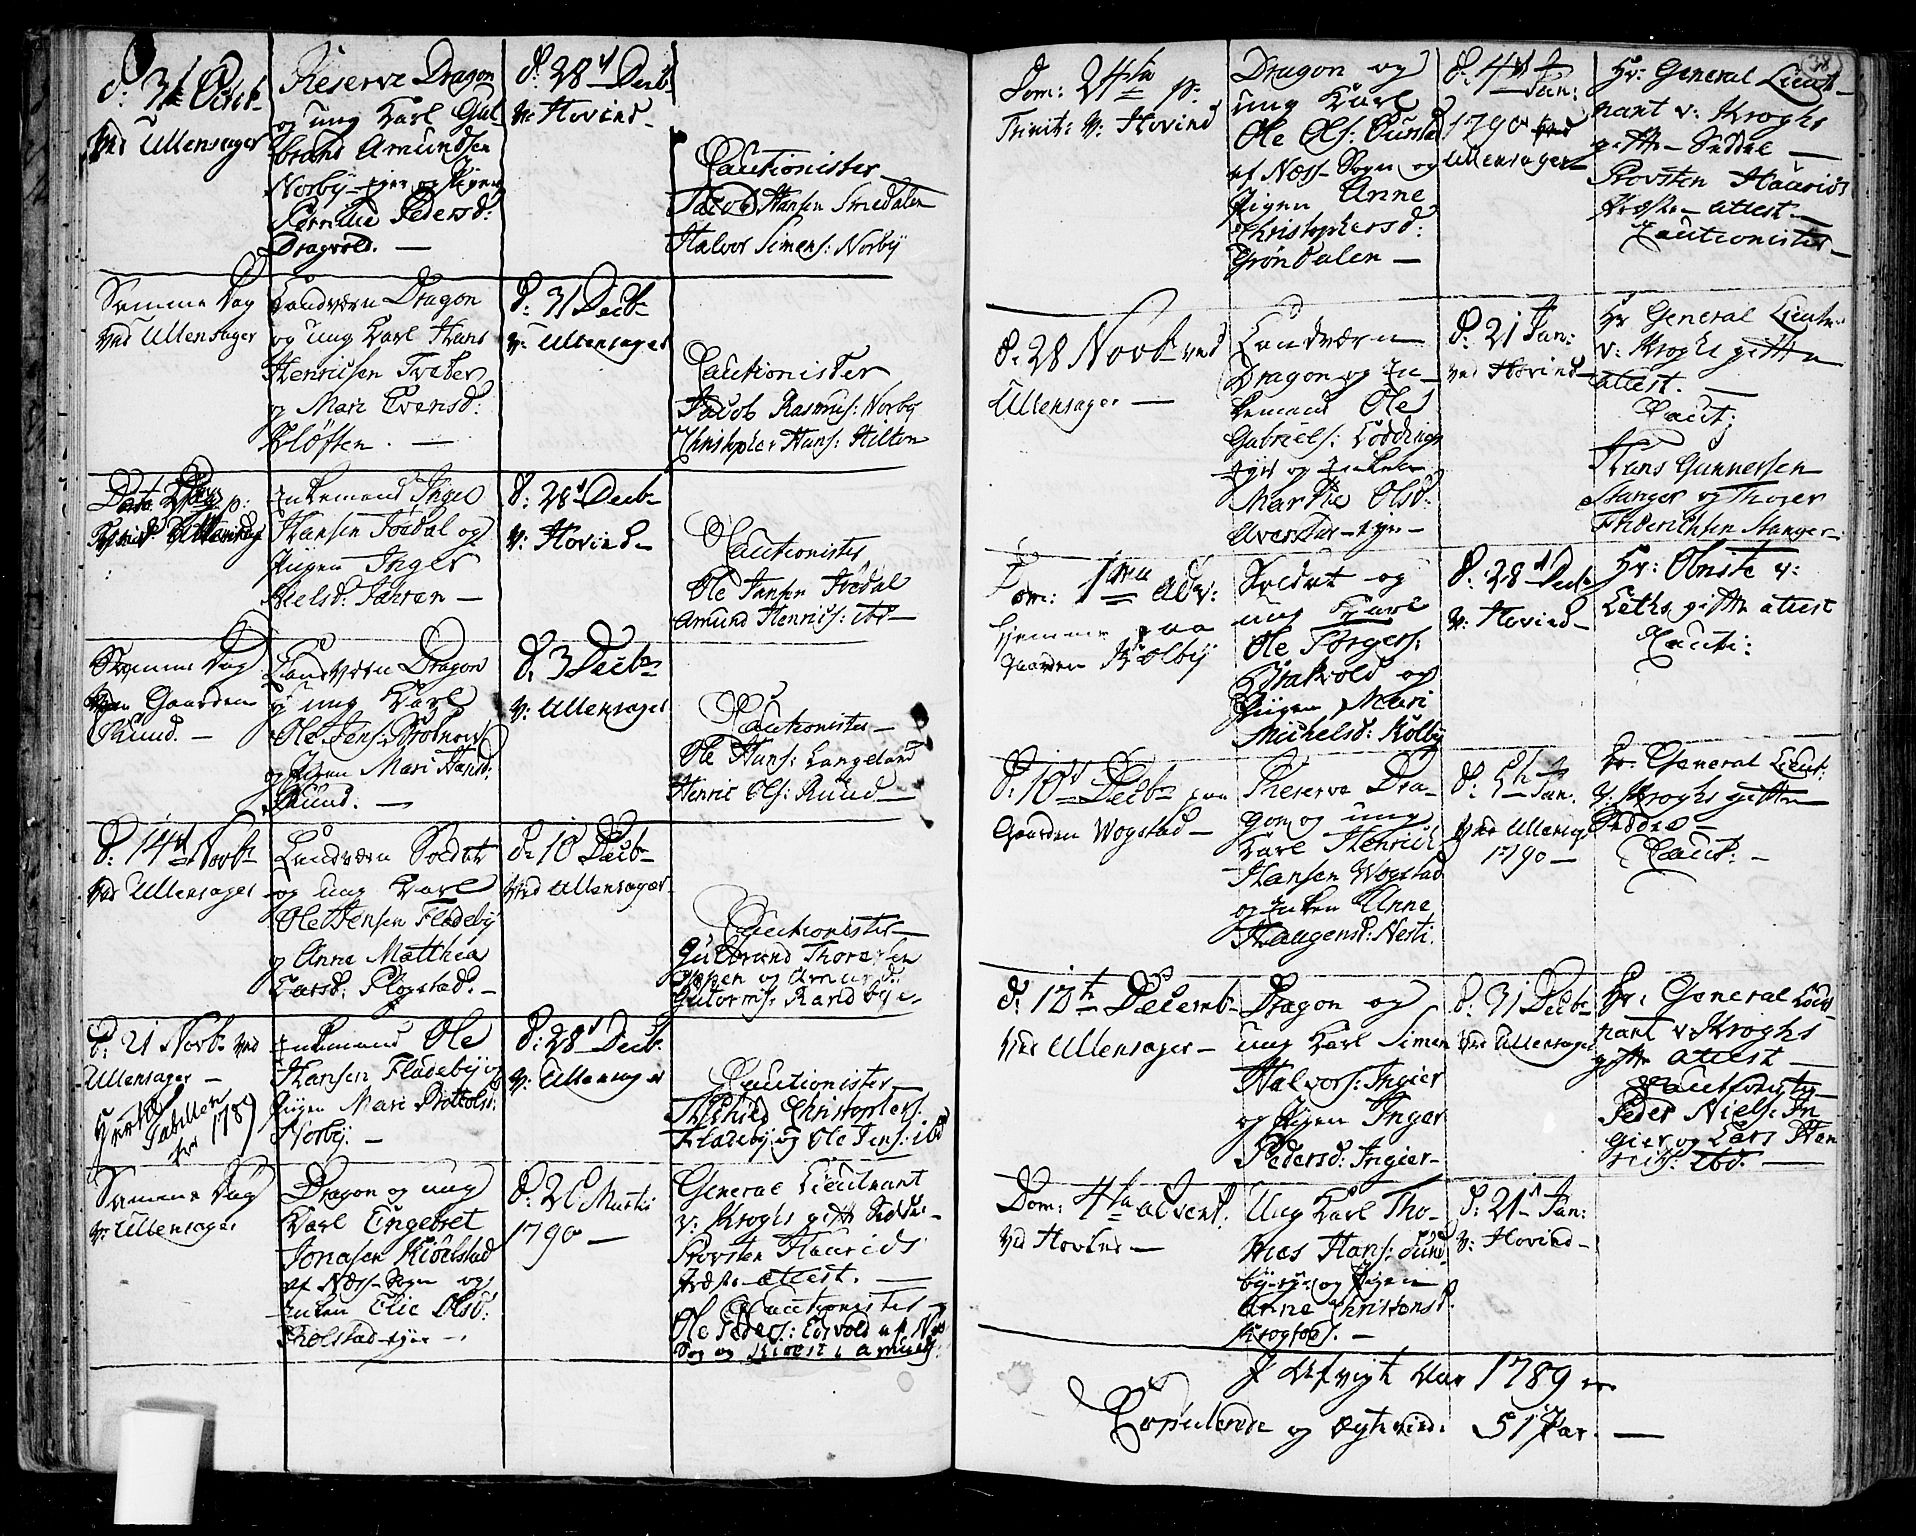 d: 31 Octbr
ved Ullensager
Reserve Dragon
og ung Karl Gul-
brand Amundsen
Norby-eyer og Pigen
Pernille Pedersd:
Dragvold. —
d: 28d Decbr
v: Hovind —
Cautionister
Jacob Hansen Smedalen
Halvor Simens: Norby
Samme Dag
ved Ullensager
Landværn Dragon
og ung Karl Hans
Henricsen Træter
og Mari Evensd:
Kløften. —
d: 31 Decbr
v: Ullensager
Cautionister
Jacob Rasmus: Norby
Christopher Hans: Hilton
Enkemand Inger
Hansen Jødal og
Pigen Inger
Nielsd: Jahren —
d: 28d Decbr
v: Hovind —
Cautionister
Ole Jansen Jødal
Amund Henrics: ibd —
Samme Dag
Gaarden
Ruud. —
Landværn Dragon
og ung Karl
Ole Jens:
og Pigen Mari Hansd:
Ruud. —
d: 3 Decbr
v: Ullensager
Cautionister —
Ole Hans: Langeland
Henric Ols: Ruud —
d: 14d Novbr
ved Ullensager
Landværn Soldat
og ung Karl
Ole Jensen Fladeby
og Anne Matthea
Larsd: Plogstad. —
d: 10 Decbr
ved Ullensager
Cautionister —
Gulbrand Thoresen
og Amund
Gutorms: Randbye —
d: 21 Novbr ved
Ullensager —
Tabellen
for 1789
Enkemand Ole
Hansen Fladeby og
Pigen Mari
Norby. —
d: 28d Decbr
v: Ullensager
Cautionister —
Christophers:
Fladeby og Ole Jens: ibd
Samme Dag
v: Ullensager
Dragon og ung
Karl Engebret
Jonasen Kiölstad
af Næss-Sogn og
Enken Elie Olsd:
Tholstad-eyer —
d: 26 Martii
1790 —
General Lieutnant
v: Kroghs gifte Seddel —
Provsten Haurids
Præste-attest. —
Cautionister —
Ole Peders: Edsvold af Næs
Sog og
38
Dom: 24de p:
Trinit: v: Hovind
Dragon og
ung Karl
Ole Ols: Aurstad
af Næss-Sogn og
Pigen Anne
Christophersd:
Gröndalen —
d: 4d Jan:
1790 ved
Ullensager
Hr: General Lieut-
nant v: Kroghs
gifte-Seddel —
Provsten Haurids
Præste-attest —
Cautionister —
d: 28 Novbr ved
Ullensager —
Landværn
Dragon og En-
kemand Ole
Gabriels: Lodding
eyer og Enken
Marthe Olsd:
Averstar-eyer —
d: 21 Jan:
ved Hovind —
Hr General Lieutn:
v: Kroghs gifte
attest. —
Caut:
Hans Gunnersen
Stanger og Thorer
Friderichsen Stanger —
Dom: 1ma Adv:
hjemme paa
Gaarden Kolby
Soldat og
ung Karl
Ole Torgers:
Brakvold og
Pigen Mari
Michelsd: Kolby
d: 28d Decbr
v: Hovind —
Hr: Obriste v:
Leths gifte attest
Cauti:
d: 10d Decbr paa
Gaarden Wogstad —
Reserve Dra-
gon og ung
Karl Henrich
Hansen Wogstad
og Enken Anne
Haagensd: Nesti.
Jan.
ved Ullensag:
1790 —
Hr: General Lieut:
v: Kroghs gifte
Seddel —
Caut: —
d: 12th Decembr
ved Ullensager —
Dragon og
ung Karl Simen
Halvors: Ingier
og Pigen Inger
Pedersd: Ingier —
d: 31 Decbr
ved Ullensager
Hr: General Lieut-
nant v: Kroghs
gifte attest —
Cautionister
Peder Niels: In-
gier og Lars Hen-
rics: ibd. —
Dom: 4ta advent:
ved Hovind —
Ung Karl Tho-
mas Hans: Sund-
by-eyer og Pigen
Anne Christensd:
Krogfos. —
d: 21 Jan:
v: Hovind —
I Alt vigt Aar 1789 er
Copulerede og Ægteviede 51 Par. —